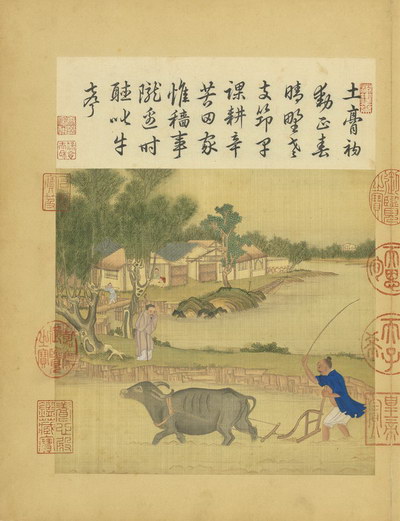 土膏初
動正春
晴野老
支筇早
課耕辛
苦田家
惟穡事
隴邊時
聽叱牛
聲
養心殿鑑藏寶